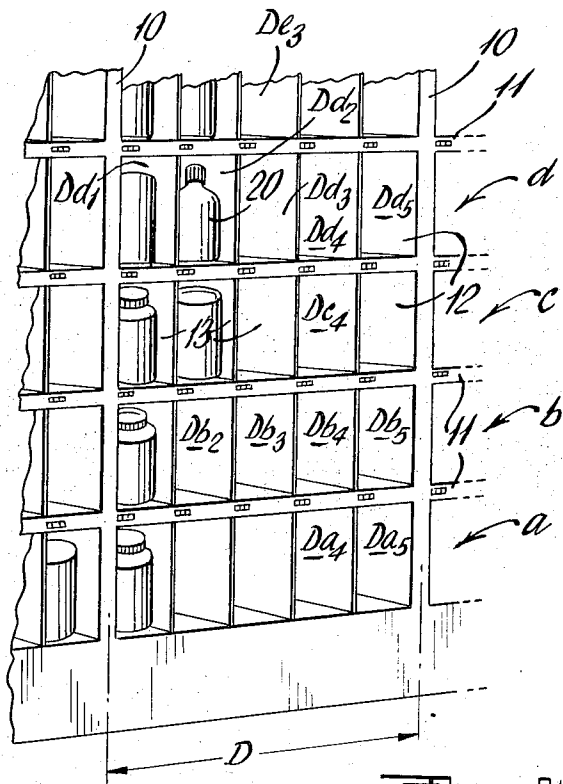 10 De3 10
11
Dd2
Dd1 20 Dd3 Dd5 d
Dd4
12
13 Dc4 c
Db2 Db3 Db4 Db5 11 b
Da4 Da5 a
D